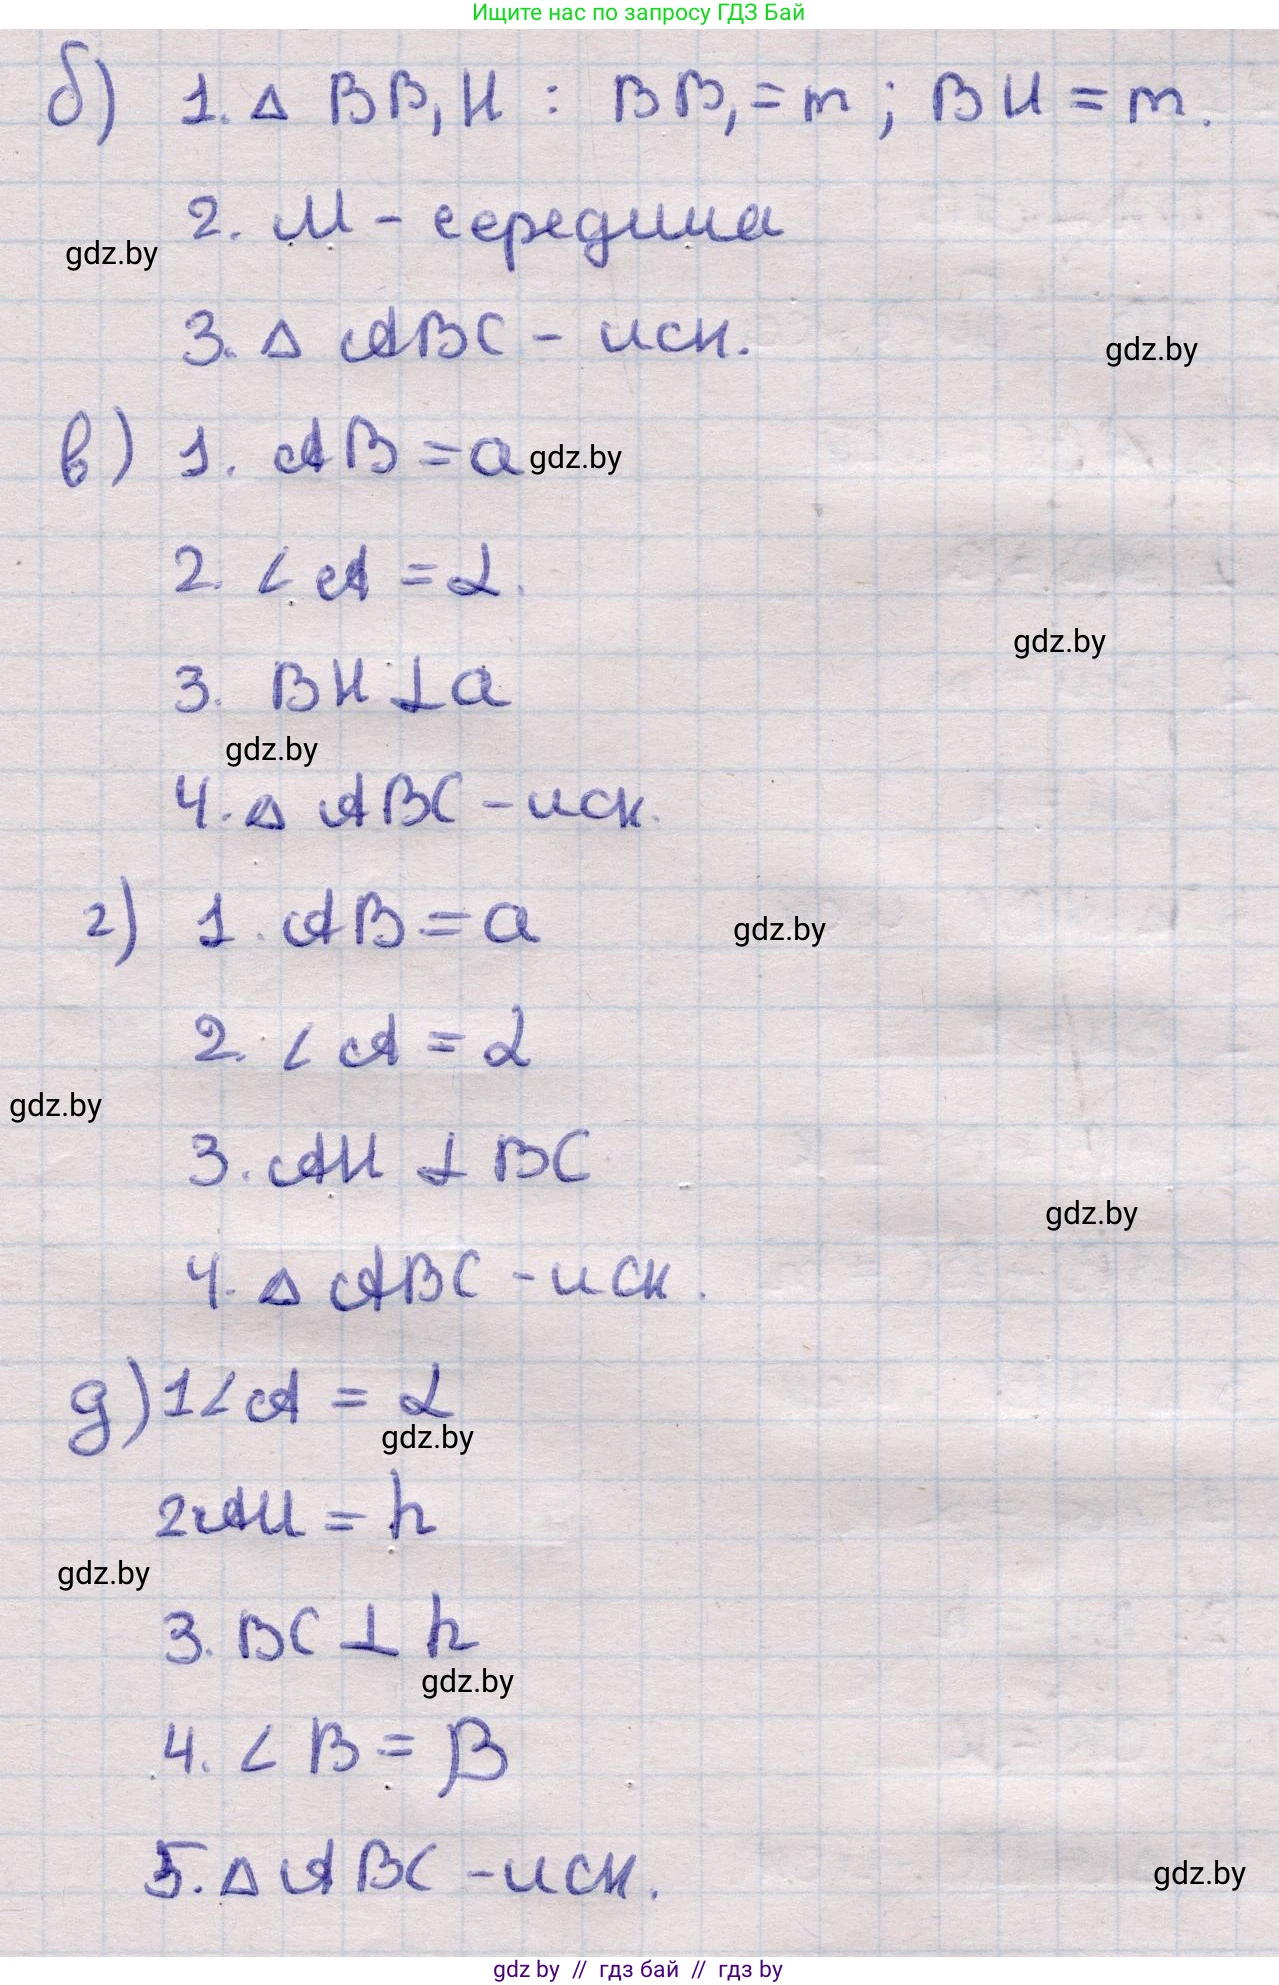 Ищите нас по запросу ГДЗ Бай
б) 1. Δ BB₁H : BB₁ = m ; BH = m.
2. M - середина
gdz.by
3. Δ ABC - иск.
gdz.by
в) 1. AB = a
gdz.by
2. ∠ A = α.
gdz.by
3. BH ⊥ a
gdz.by
4. Δ ABC - иск.
г) 1. AB = a
gdz.by
2. ∠ A = α
gdz.by
3. AH ⊥ BC
gdz.by
4. Δ ABC - иск.
д) 1 ∠ A = α
gdz.by
2. AH = h
gdz.by
3. BC ⊥ h
gdz.by
4. ∠ B = β
5. Δ ABC - иск.
gdz.by
gdz by // гдз бай // гдз by